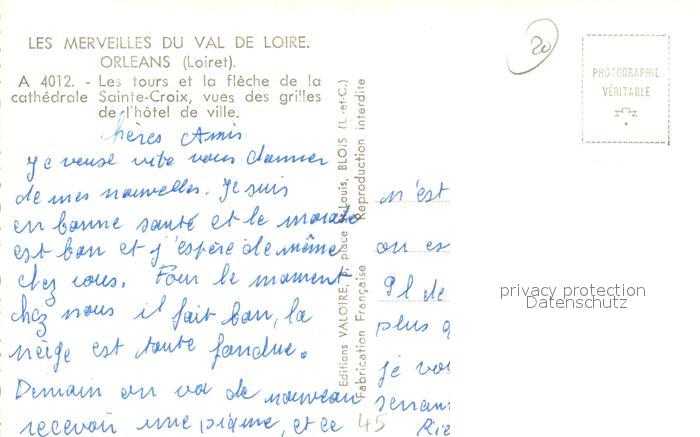 LES MERVEILLES DU VAL DE LOIRE.
ORLEANS (Loiret).
A 4012. - Les tours et la flèche de la
cathédrale Sainte-Croix, vues des grilles
de l'hôtel de ville.
20
PHOTOGRAPHIE
VÉRITABLE
hères Amis
Je veuse vite vous donner
de mes nouvelles. Je suis
en bonne santé et le morale
est bon et j'espère de même
chez vous. Pour le moment
chez nous il fait bon, la
neige est toute fondue.
Demain on va de nouveau
recevoir une et ce
Editions VALOIRE, place Louis, BLOIS (L.-et-C.)
Fabrication Française Reproduction interdite
45
n'est
on es
Il de
plus q
je vou
serran
Rie
privacy protection
Datenschutz